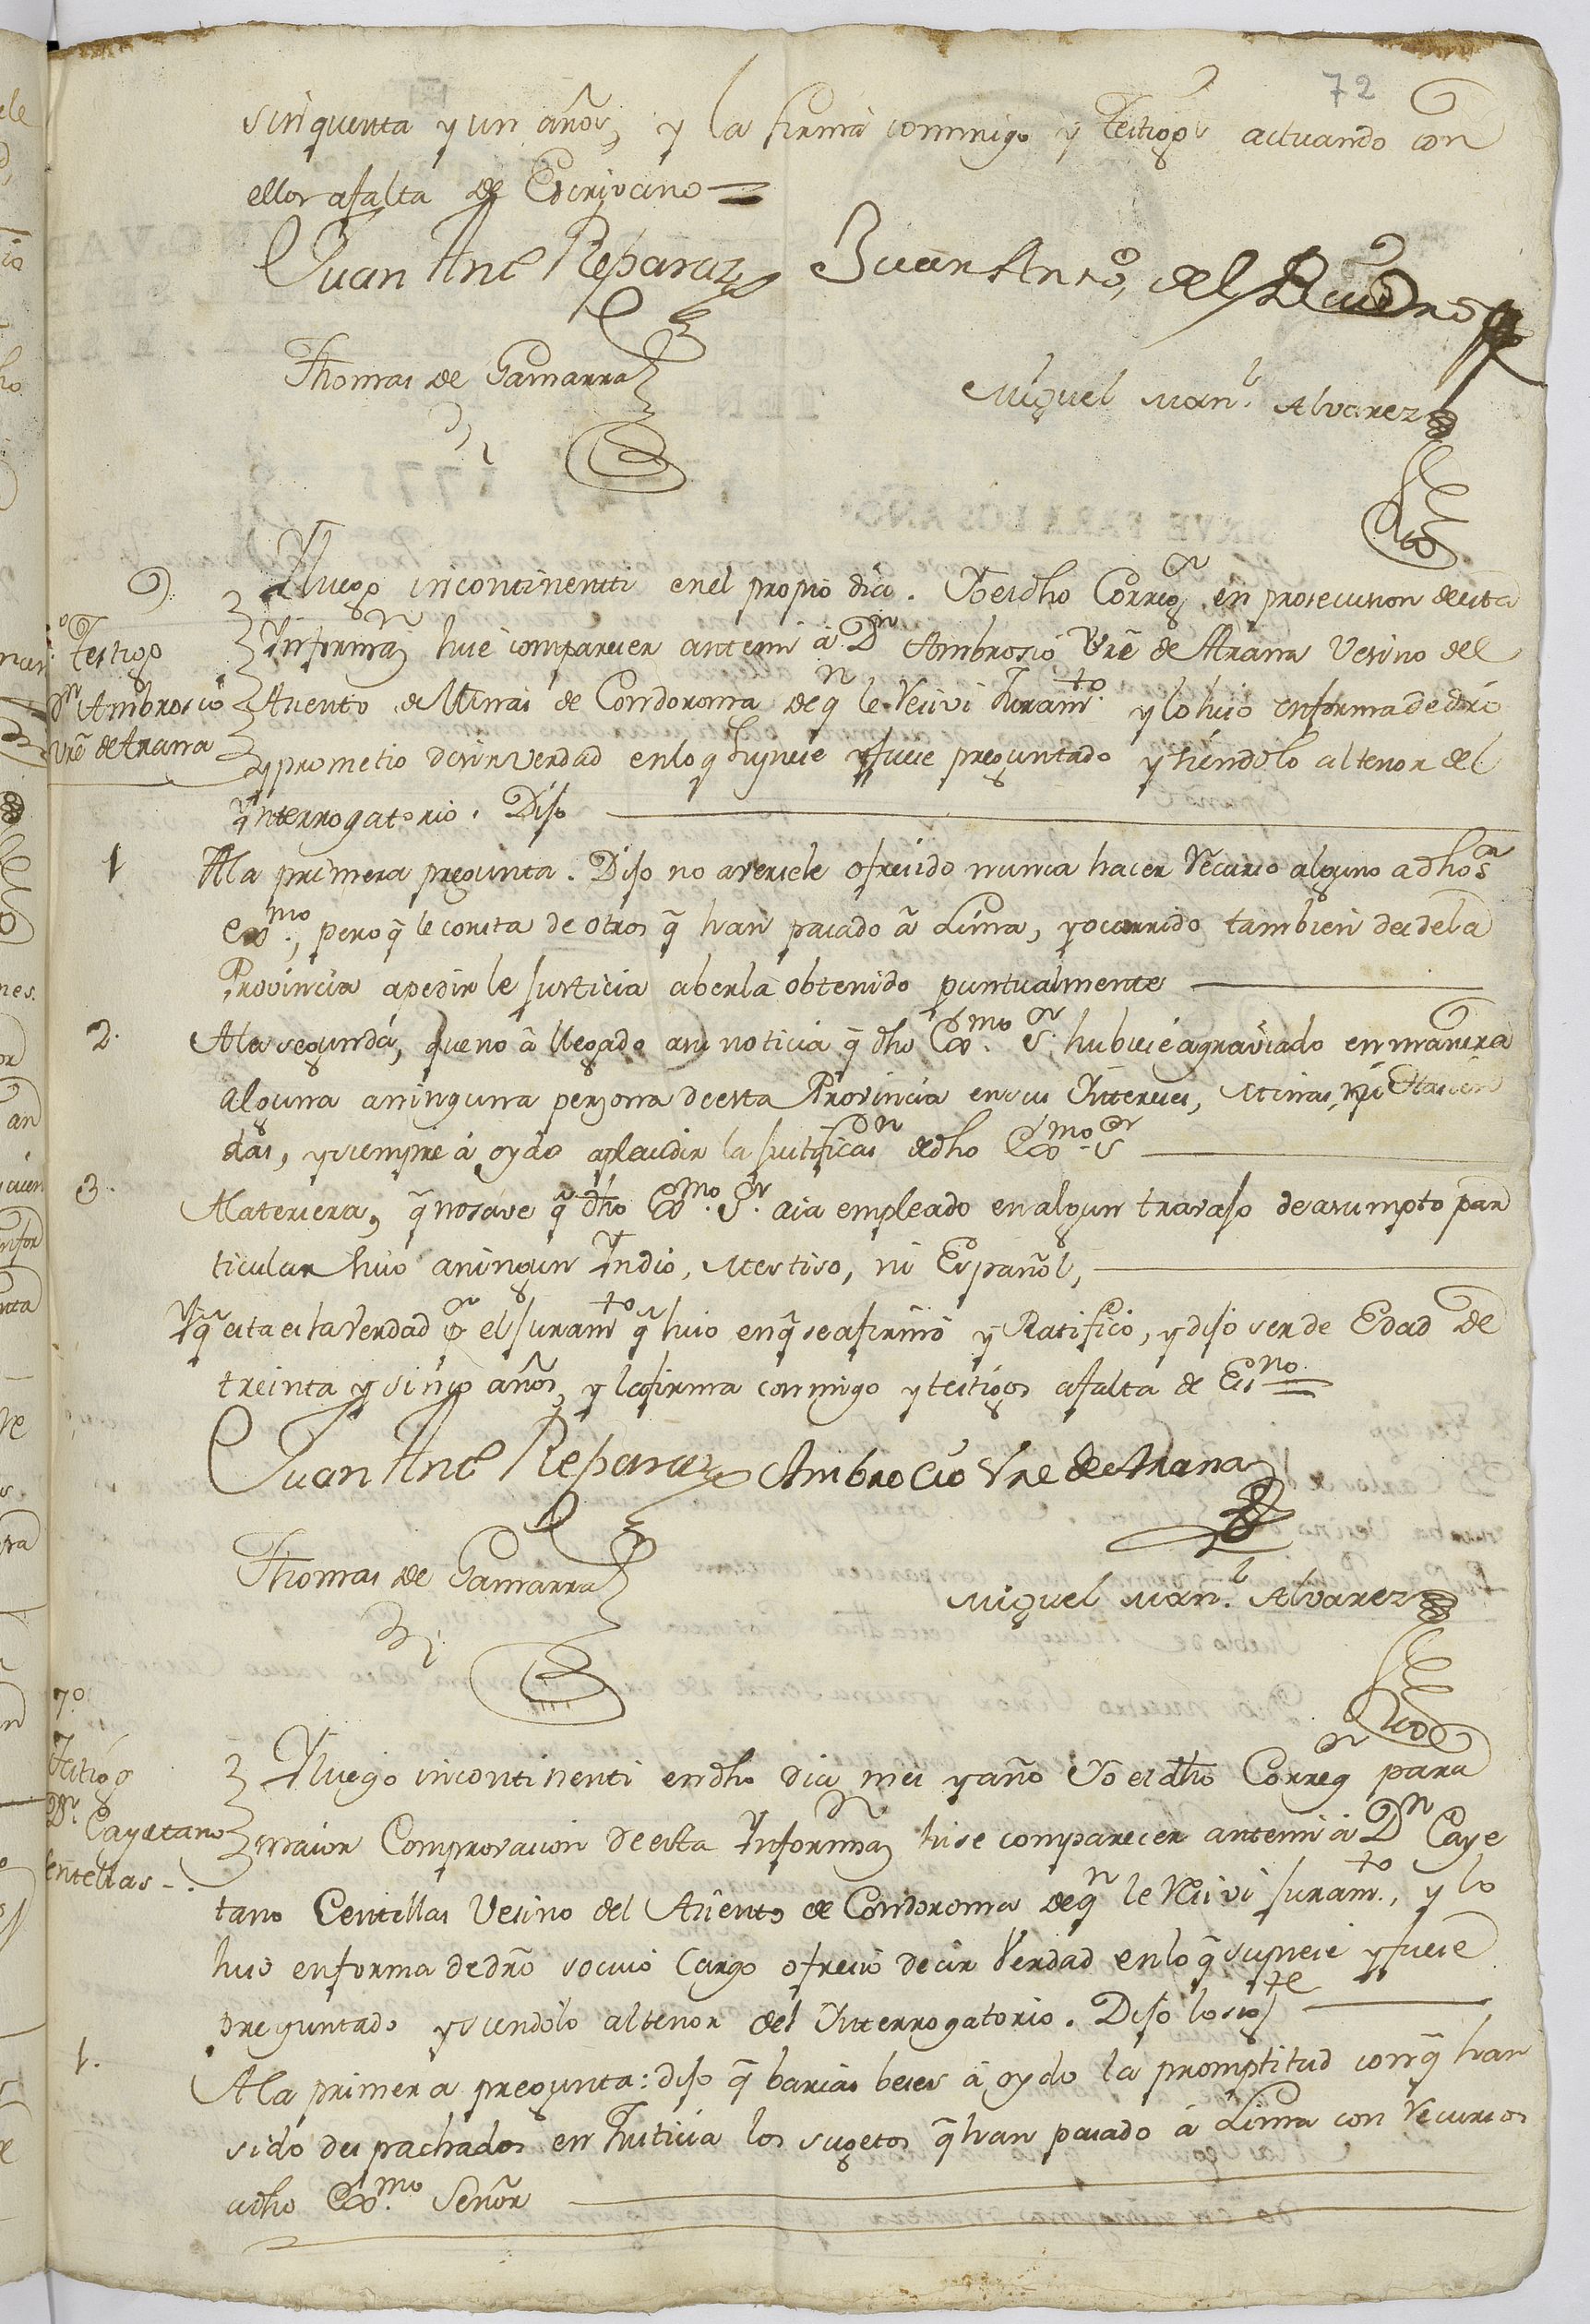 72
sinquenta y un años, y la firma conmigo y Testigos actuando con
ellos afalta de Escrivano =
Juan Antº Reparaz Juan Antº, del Quadro
Thomas de Gamarra
Miguel Manl. Alvarez
Yluego incontinenti enel propio dia. Yo el dho Corregor en prosecusion de esta
Testigo
Informan hise comparecer antemi á Dn Ambrosio Vre de Arana Vesino del
Dn Ambrosio
Asiento de Minas de Condoroma de qn le Resivi Juramto. y lo hiso enforma de dro
Vre de Arana
y prometio desir verdad enlo q supiese y fuese preguntado y siendolo altenor del
Ynterrogatorio. Dijo
1 Ala primera pregunta. Dijo no aversele ofresido nunca hacer Recurso alguno a dho Sor
Exmo., pero q̃ le consta de otros q̃ han pasado â Lima, y ocurrido tambien desdela
Provincia apedirle Justicia aberla obtenido puntualmente
2. Ala segunda, que no â llegado asu noticia q̃ dho Exmo. Sor. hubiese agraviado en manera
alguna aninguna persona de esta Provincia ensus Yntereses, Minas, ni Hacien
das, y siempre á oydo aplaudir la Justificasn de dho Exmo. Sor
3. Alatersera, q̃ nosave q̃ dho Exmo. Sr. aia empleado en algun travajo de asumpto par
ticular suio aningun Yndio, Mestiso, ni Español,
Yq̃ esta es la Verdad pr el Juramto q̃ hiso enq̃ se afirmó y Ratificó, y dijo ser de Edad de
treinta y sinco años, y lo firma conmigo y testigos afalta de Esno =
Juan Antº Reparaz Ambrocio Vre de Arana
Thomas de Gamarra
Miguel Manl. Alvarez
7º
Testigo
Yluego incontinenti en dho dia mes y año Yo el dho Corregor para
Dn. Cayetano
maior Comprovacion de esta Informan hise comparecer antemi á Dn Caye
Sentellas
tano Centellas Vesino del Asiento de Condoroma de qn le Resivi Juramto., y lo
hiso enforma de dro socuio Cargo ofresió decir Verdad enlo q̃ supiese y fuese
preguntado y siendolo altenor del Ynterrogatorio. Dijo lo sigte
1. Ala primera pregunta: dijo q̃ barias beses á oydo la promptitud con q̃ han
sido despachados en Justicia los sugetos q̃ han pasado á Lima con Recursos
adho Exmo. Señor